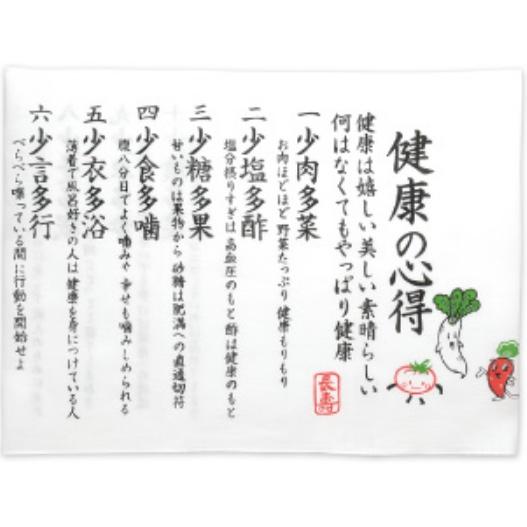 健康の心得
健康は嬉しい美しい素晴らしい
何はなくてもやっぱり健康
長寿
一少肉多菜
お肉ほどほど野菜たっぷり健康もりもり
二少塩多酢
塩分摂りすぎは高血圧のもと酢は健康のもと
三少糖多果
甘いものは果物から砂糖は肥満への直通切符
四少食多噛
腹八分目でよく噛みや幸せも噛みしめられる
五少衣多浴
薄着で風呂好きの人は健康を身につけている人
六少言多行
べらべら喋っている間に行動を開始せよ